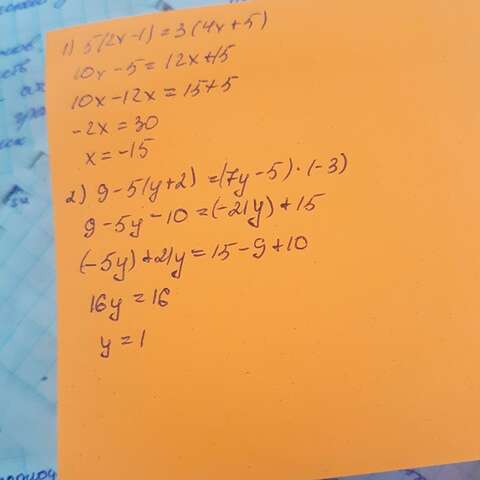 1) 5(2x-1)=3(4x+5)
10x-5=12x+15
10x-12x=15+5
-2x=30
x=-15
2) 9-5(y+2)=(7y-5)·(-3)
9-5y-10=(-21y)+15
(-5y)+21y=15-9+10
16y=16
y=1